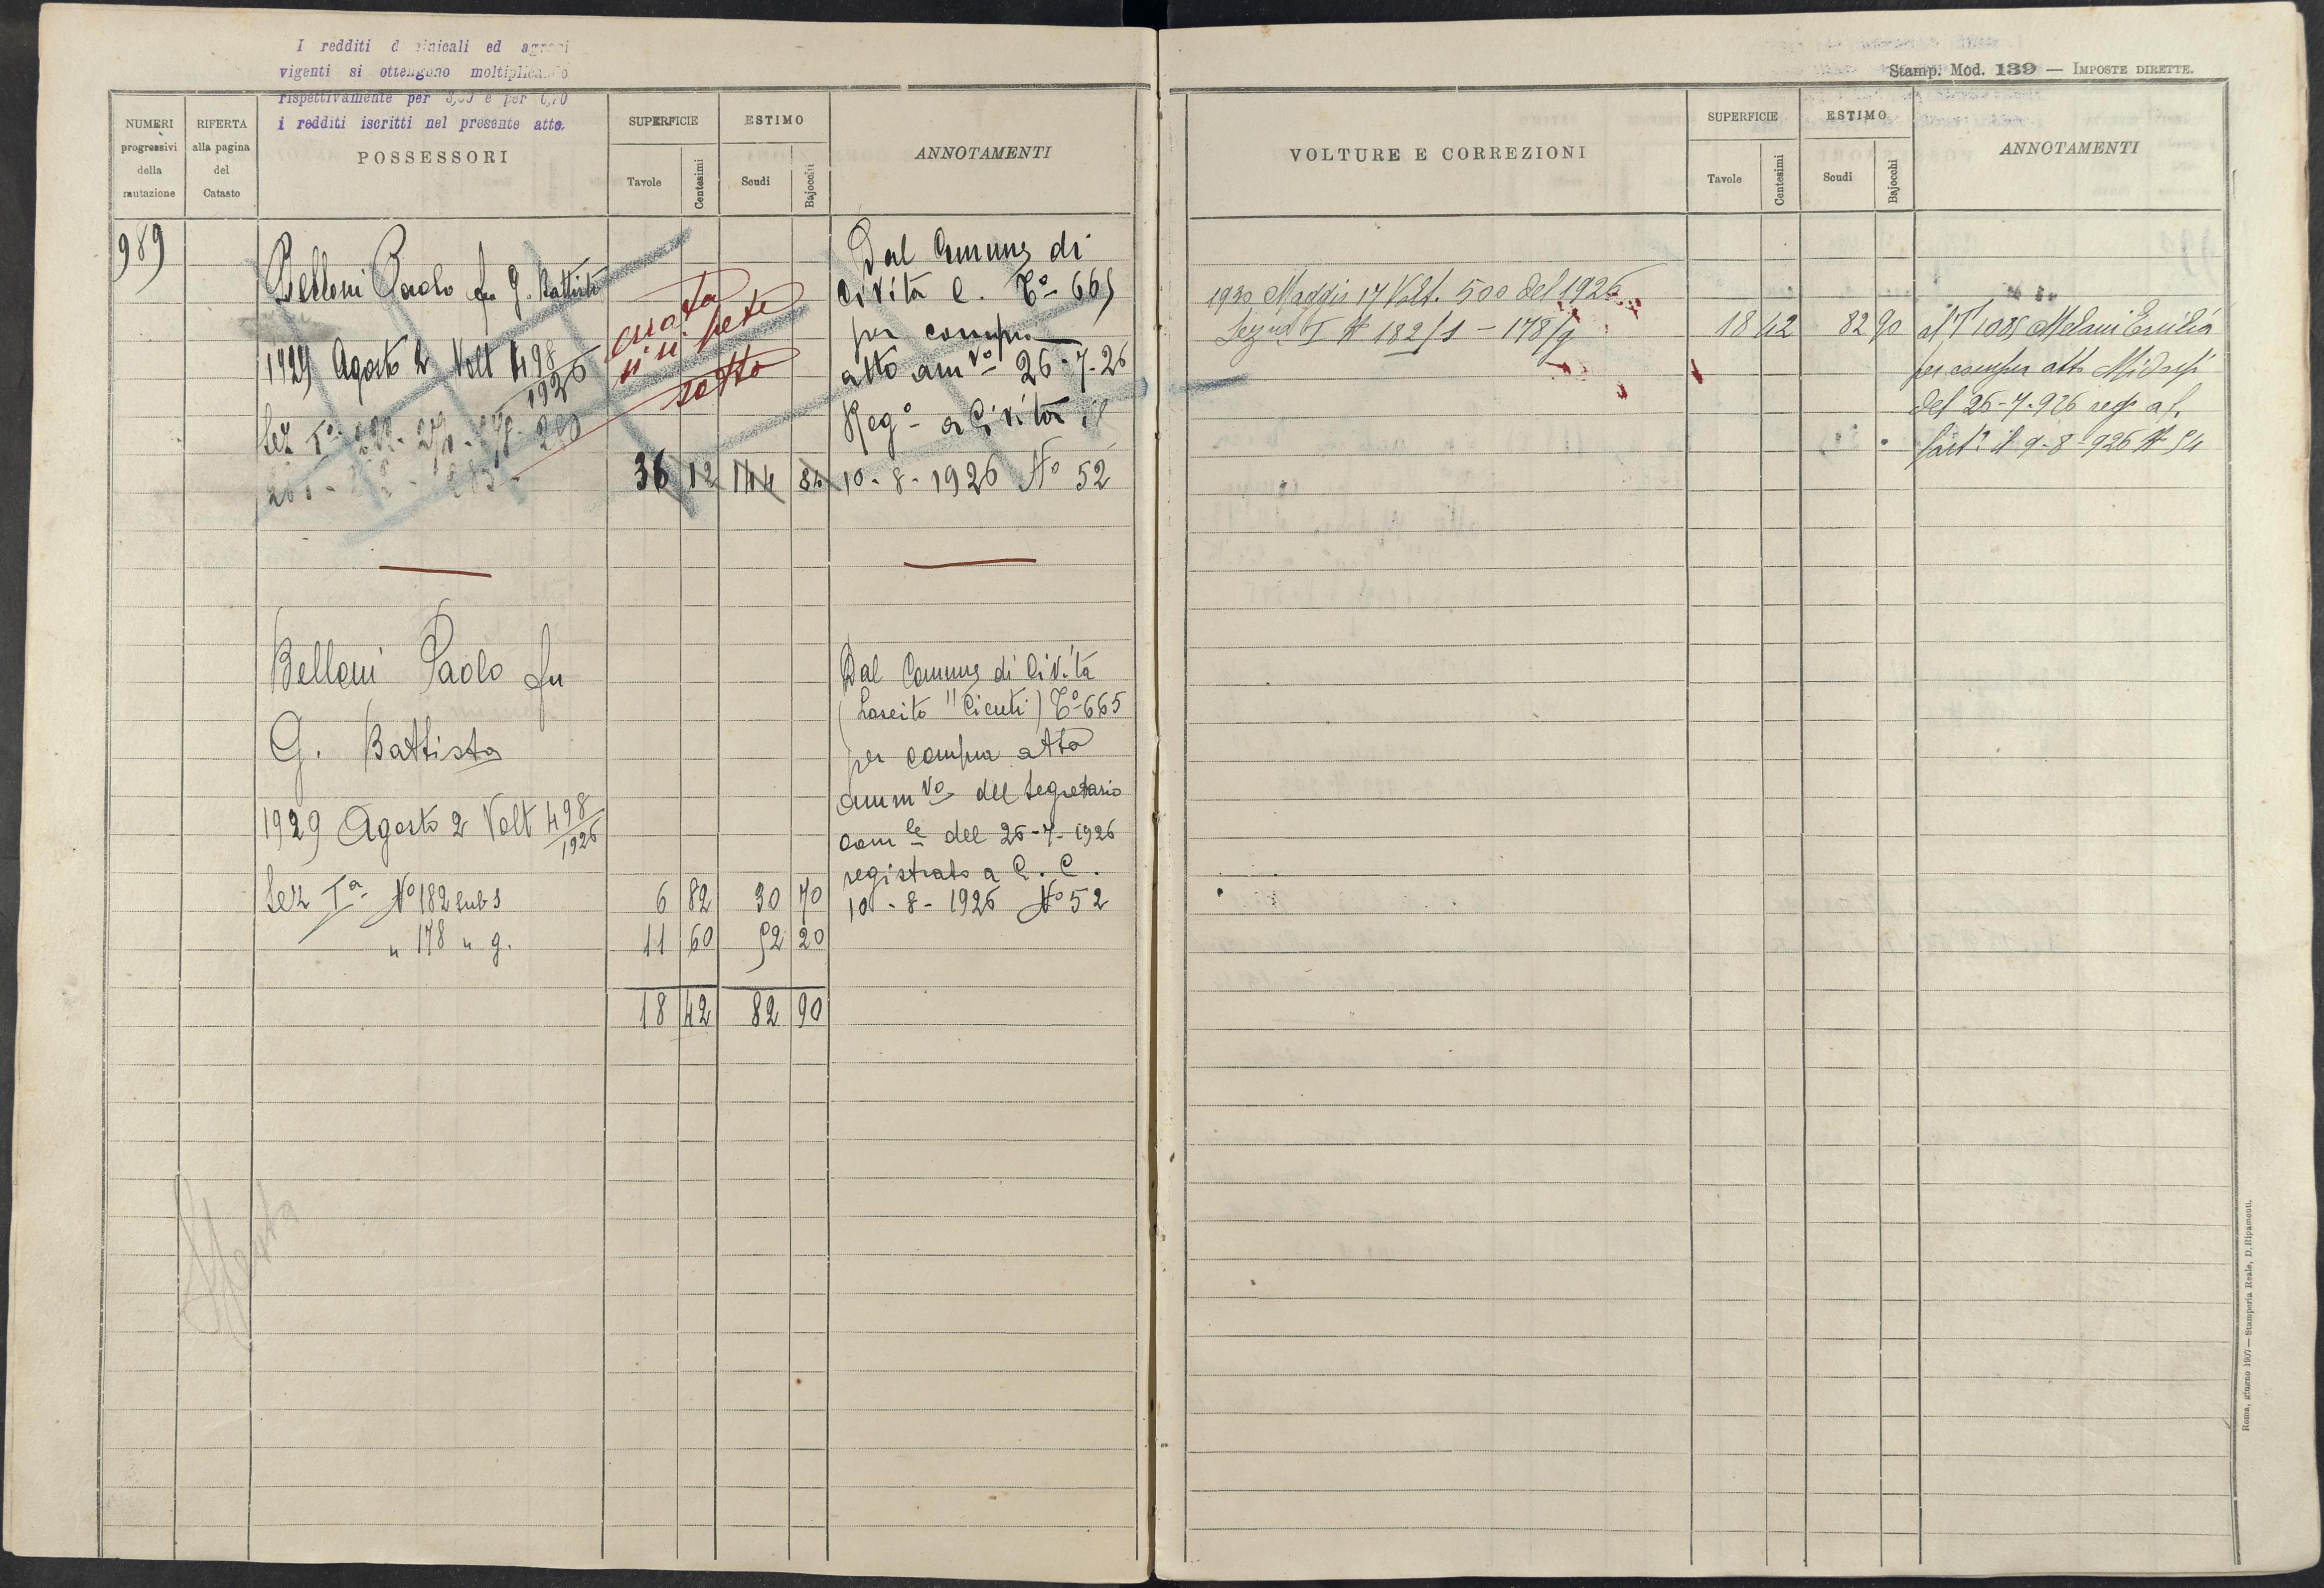 I redditi dominicali ed agrari
vigenti si ottengono moltiplicando
rispettivamente per e per 0,70
i redditi iscritti nel presente atto.
NUMERI progressivi della mutazione
RIFERTA alla pagina del Catasto
POSSESSORI
SUPERFICIE
Tavole
Centesimi
ESTIMO
Scudi
Bajocchi
ANNOTAMENTI
989
Belloni Paolo fu G. Battista
1929 Agosto 2 Volt 498
1926
Sez Tª
errata
si ripete
sotto
36 12 144 84
Dal Comune di
Civita C. Tº 665
per compra
atto amvo 26-7-26
Regº a Civita il
10-8-1926 Nº 52
Belloni Paolo fu
G. Battista
1929 Agosto 2 Volt 498
1926
Sez Tª Nº 182 sub 1 6 82 30 70
" 178 " g. 11 60 52 20
18 42 82 90
Dal Comune di Civita
(Lascito "Cicuti") Tº 665
per compra atto
ammvo del Segretario
comle del 26-7-1926
registrato a C. C.
10-8-1926 Nº 52
Stamp. Mod. 139 — IMPOSTE DIRETTE.
VOLTURE E CORREZIONI
SUPERFICIE
Tavole
Centesimi
ESTIMO
Scudi
Bajocchi
ANNOTAMENTI
1930 Maggio 17 Volt. 500 del 1926
Segna T Nº 182/1 - 178/g 18 42 82 90
al T 1035 Melani Emilia
per compra atto
del 26-7-926 regº a C.
Cast. il 9-8-926 Nº 54
Roma, giugno 1907 — Stamperia Reale, D. Ripamonti.